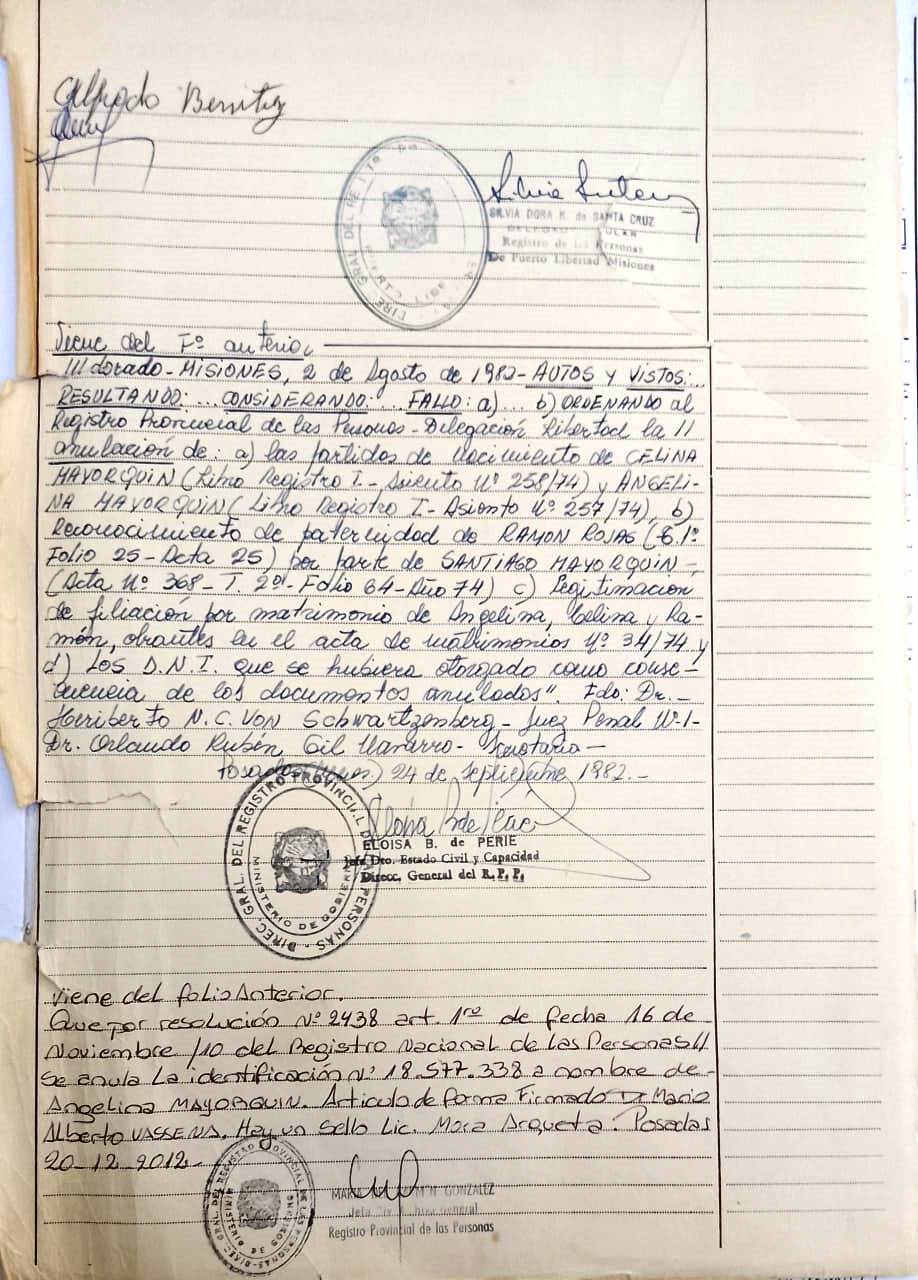 Alfredo Benitez
SILVIA DORA K. de SANTA CRUZ
Registro de las Personas
De Puerto Libertad Misiones
Viene del Fº anterior
dorado - MISIONES, 2 de Agosto de 1982 - AUTOS y VISTOS: ...
RESULTANDO: ... CONSIDERANDO: ... FALLO: a)... b) ORDENANDO al
Registro Provincial de las Personas - Delegación Libertad la //
anulación de: a) las partidas de nacimiento de CELINA
MAYORQUIN (Libro Registro I - Asiento Nº 258/74) y ANGELI-
NA MAYORQUIN (Libro Registro I - Asiento Nº 257/74), b)
Reconocimiento de paternidad de RAMON ROJAS (
Folio 25 - Acta 25) por parte de SANTIAGO MAYORQUIN -
(Acta Nº 368 - T. 2º - Folio 64 - Año 74) c) Legitimacion
de filiación por matrimonio de Angelina, Celina y Ra-
món, obrantes en el acta de matrimonios Nº 34/74 y
d) LOS D.N.I. que se hubiera otorgado como conse-
cuencia de los documentos anulados". Fdo: Dr. -
Heriberto N.C. Von Schwartzenberg - Juez Penal Nº 1 -
Dr. Orlando Rubén Gil Navarro - Secretario -
Posadas 24 de Septiembre 1982. -
DIREC. GRAL. DEL REGISTRO PROVINCIAL DE LAS PERSONAS
MINISTERIO DE GOBIERNO
ELOISA B. de PERIE
Jefa Dto. Estado Civil y Capacidad
Direcc. General del R. P. P.
Viene del folio Anterior.
Que por resolución Nº 2438 art. 1ro de fecha 16 de
Noviembre /10 del Registro Nacional de las Personas //
se anula La identificación Nº 18.577.338 a nombre de -
Angelina MAYORQUIN. Articulo de forma Firmado Dr Mario
Alberto VASSENA. Hay un sello Lic. Mora Arqueta. Posadas
20-12-2012 -
DIREC. GRAL. DEL REGISTRO PROVINCIAL DE LAS PERSONAS
MINISTERIO DE GOBIERNO
GONZALEZ
General
Registro Provincial de las Personas